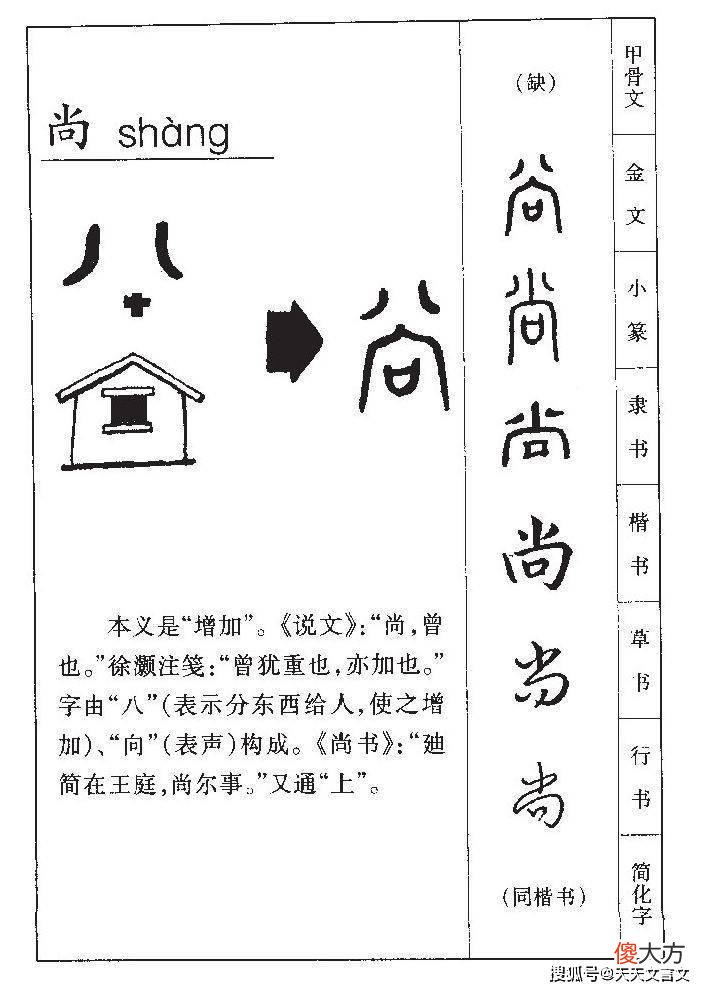 尚 shàng
八
尚
本义是“增加”。《说文》:“尚,曾
也。”徐灏注笺:“曾犹重也,亦加也。”
字由“八”(表示分东西给人,使之增
加)、“向”(表声)构成。《尚书》:“迪
简在王庭,尚尔事。”又通“上”。
(缺)
尚
尚
尚
尚
尚
尚
(同楷书)
甲骨文
金文
小篆
隶书
楷书
草书
行书
简化字
傻大方
搜狐号@天天文言文